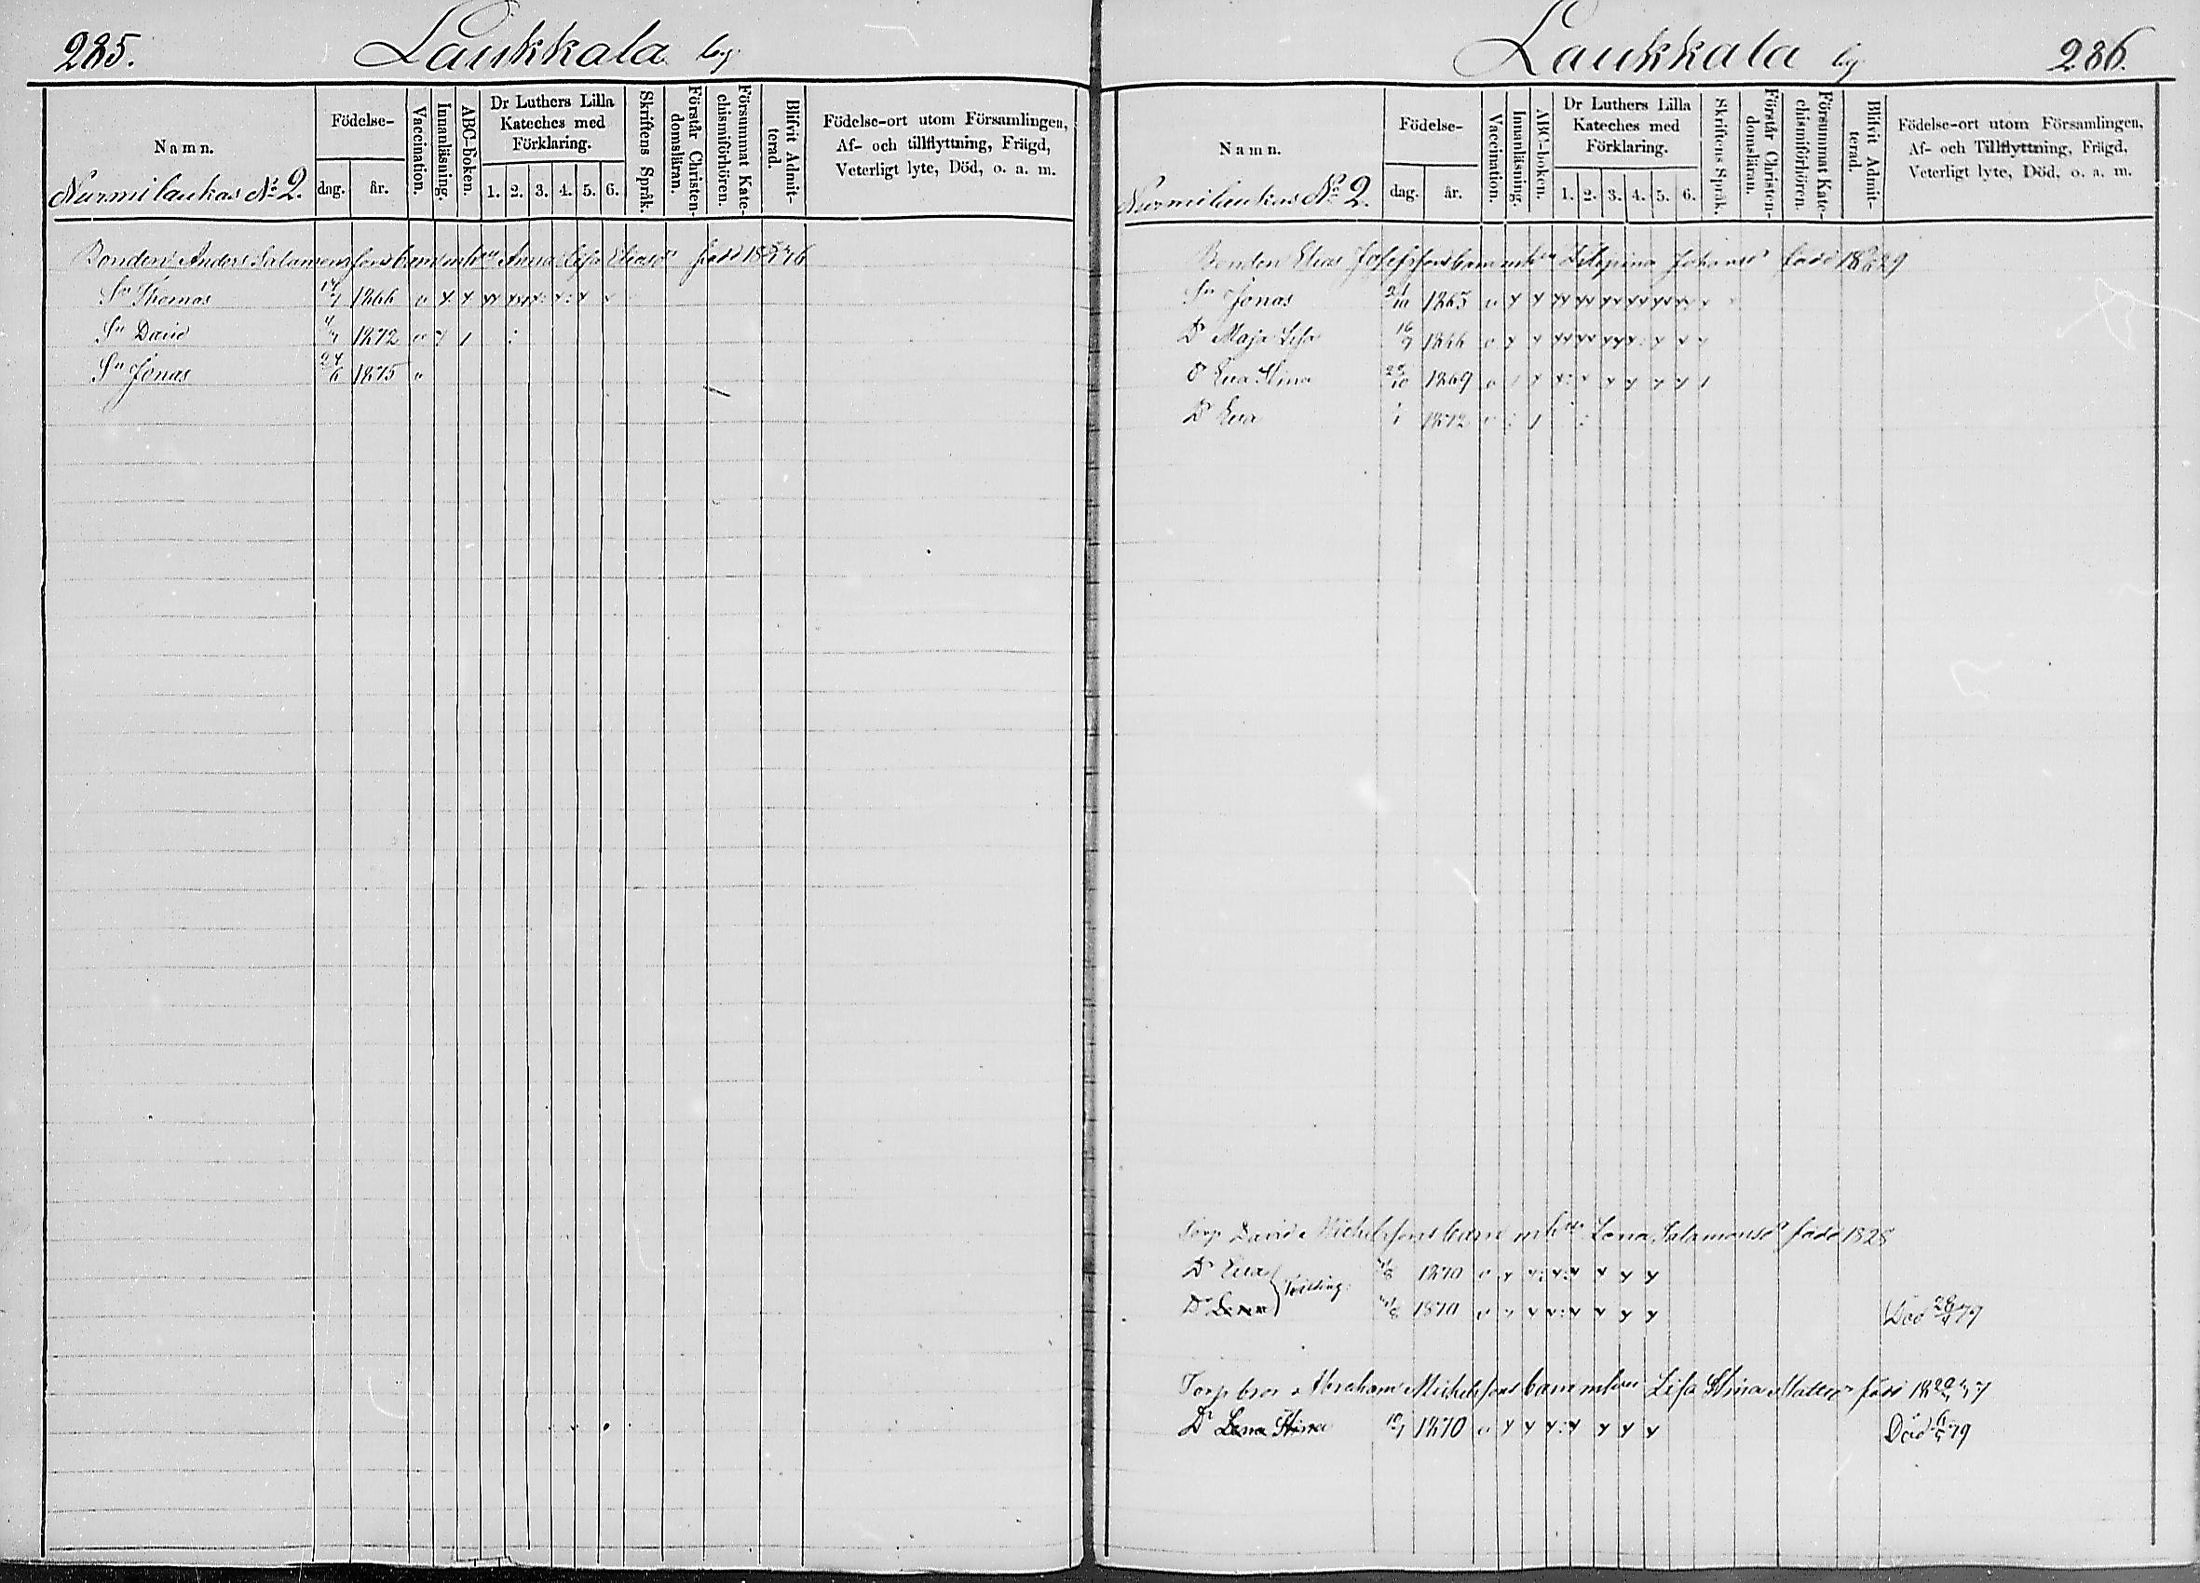 285.
Laukkala by
Namn.
Nurmilaukas No 2.
Födelse-
dag.
år.
Vaccination.
Innanläsning.
ABC-boken.
Dr Luthers Lilla
Kateches med
Förklaring.
1. 2. 3. 4. 5. 6.
Skriftens Språk.
Förstår Christen-
domsläran.
Försummat Kate-
chismiförhören.
Blifvit Admit-
terad.
Födelse-ort utom Församlingen,
Af- och tillflyttning, Frägd,
Veterligt lyte, Död, o. a. m.
Bonden Anders Salomonssons barn m hu Anna Lisa Eliasdr född
Sn Thomas 1866
Sn David 1872
Sn Jonas 24/6 1875
Laukkala by
286.
Namn.
Nurmilaukas No 2.
Födelse-
dag.
år.
Vaccination.
Innanläsning.
ABC-boken.
Dr Luthers Lilla
Kateches med
Förklaring.
1. 2. 3. 4. 5. 6.
Skriftens Språk.
Förstår Christen-
domsläran.
Försummat Kate-
chismiförhören.
Blifvit Admit-
terad.
Födelse-ort utom Församlingen,
Af- och Tillflyttning, Frägd,
Veterligt lyte, Död, o. a. m.
Bonden Elias Josefssons barn m Johansdr född
Sn Jonas 1865
Dr Maja Lisa 16/9 1866
Dr Eva Stina 1869
Dr Eva 1872
Torp David Michelssons barn m hu Lena Salamonsdr född 1828
Dr Eva 1870
Tvilling
Dr Lena 1870 Död 79
Torp bror Abraham Michelssons barn m hu Lisa Stina Mattsdr född
Dr Lena Stina 1870 Död 79